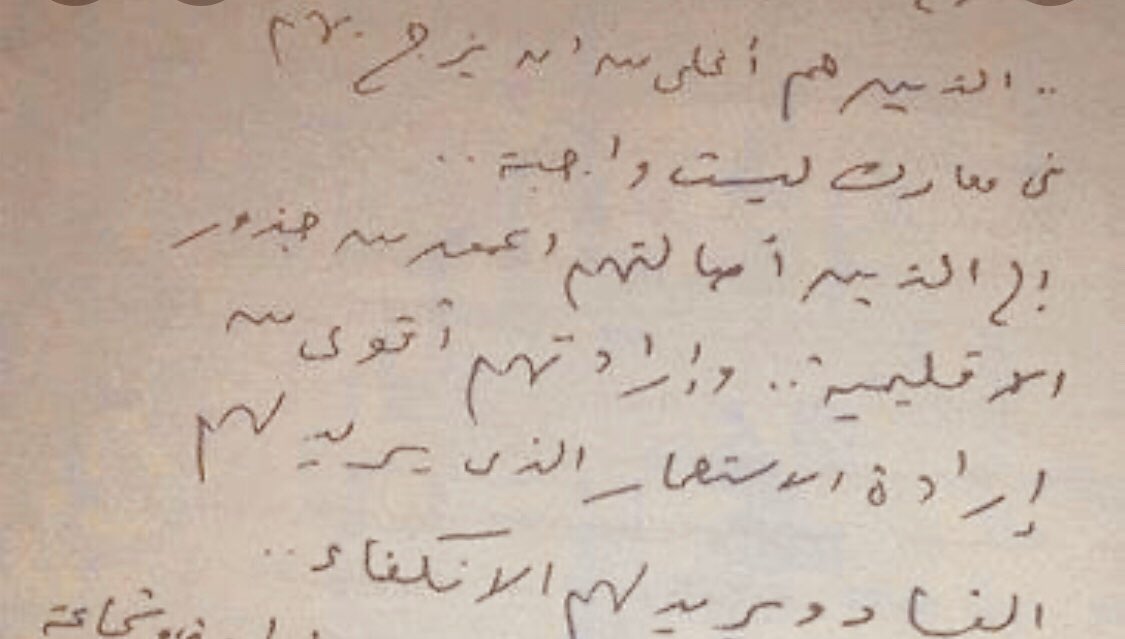 .. الذين هم أغلى من ان يزج بهم
في معارك ليست واجبة ..
إلى الذين أصالتهم اعمق من جذور
الاقليمية .. وإرادتهم أقوى من
إرادة الاستعمار الذى يريد لهم
الفساد ويريد لهم الانكفاء ..
شجاعة